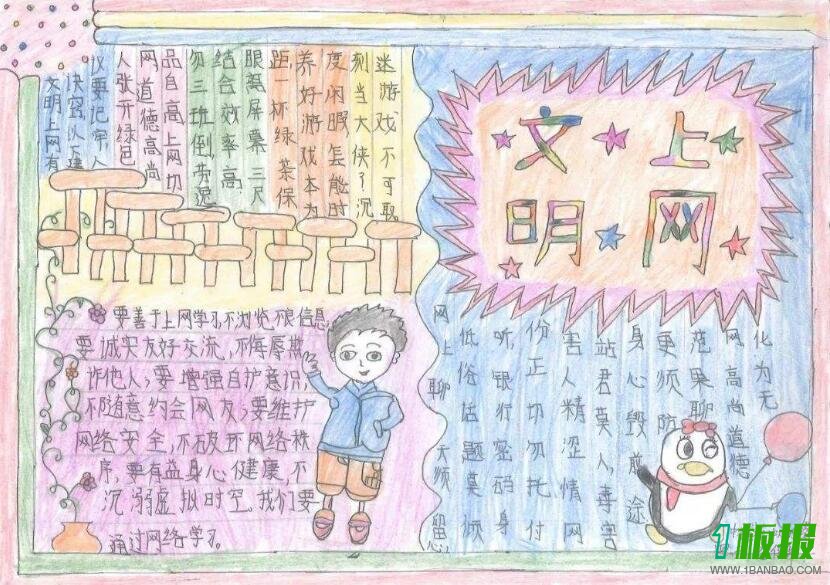 文明
上网
文明上网有
诀窍以下建
议要记牢人
人张开绿色
网道德高尚
品自高上网切
勿三班倒,劳逸
结合效率高
眼离屏幕三尺
距一杯绿茶保
养好游戏本为
度闲暇怎能时
刻当大侠了沉
迷游戏不可取
要善于上网学习,不浏览不良信息,
要诚实友好交流,不侮辱欺
诈他人;要增强自护意识,
不随意约会网友;要维护
网络安全,不破环网络秩
序,要有益身心健康,不
沉溺虚拟时空。我们要
通过网络学习。
网上聊天须留心
低俗话题莫倾
听,银行密码身
份正切勿托付
害人精涩情网
站君莫入,毒害
身心毁前途
更须防
范果聊
网高尚道德
化为无
1板报
WWW.1BANBAO.COM